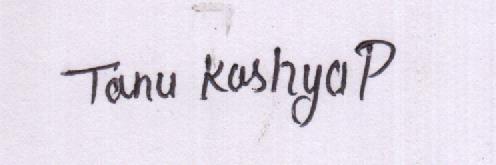 Tanu KashyaP